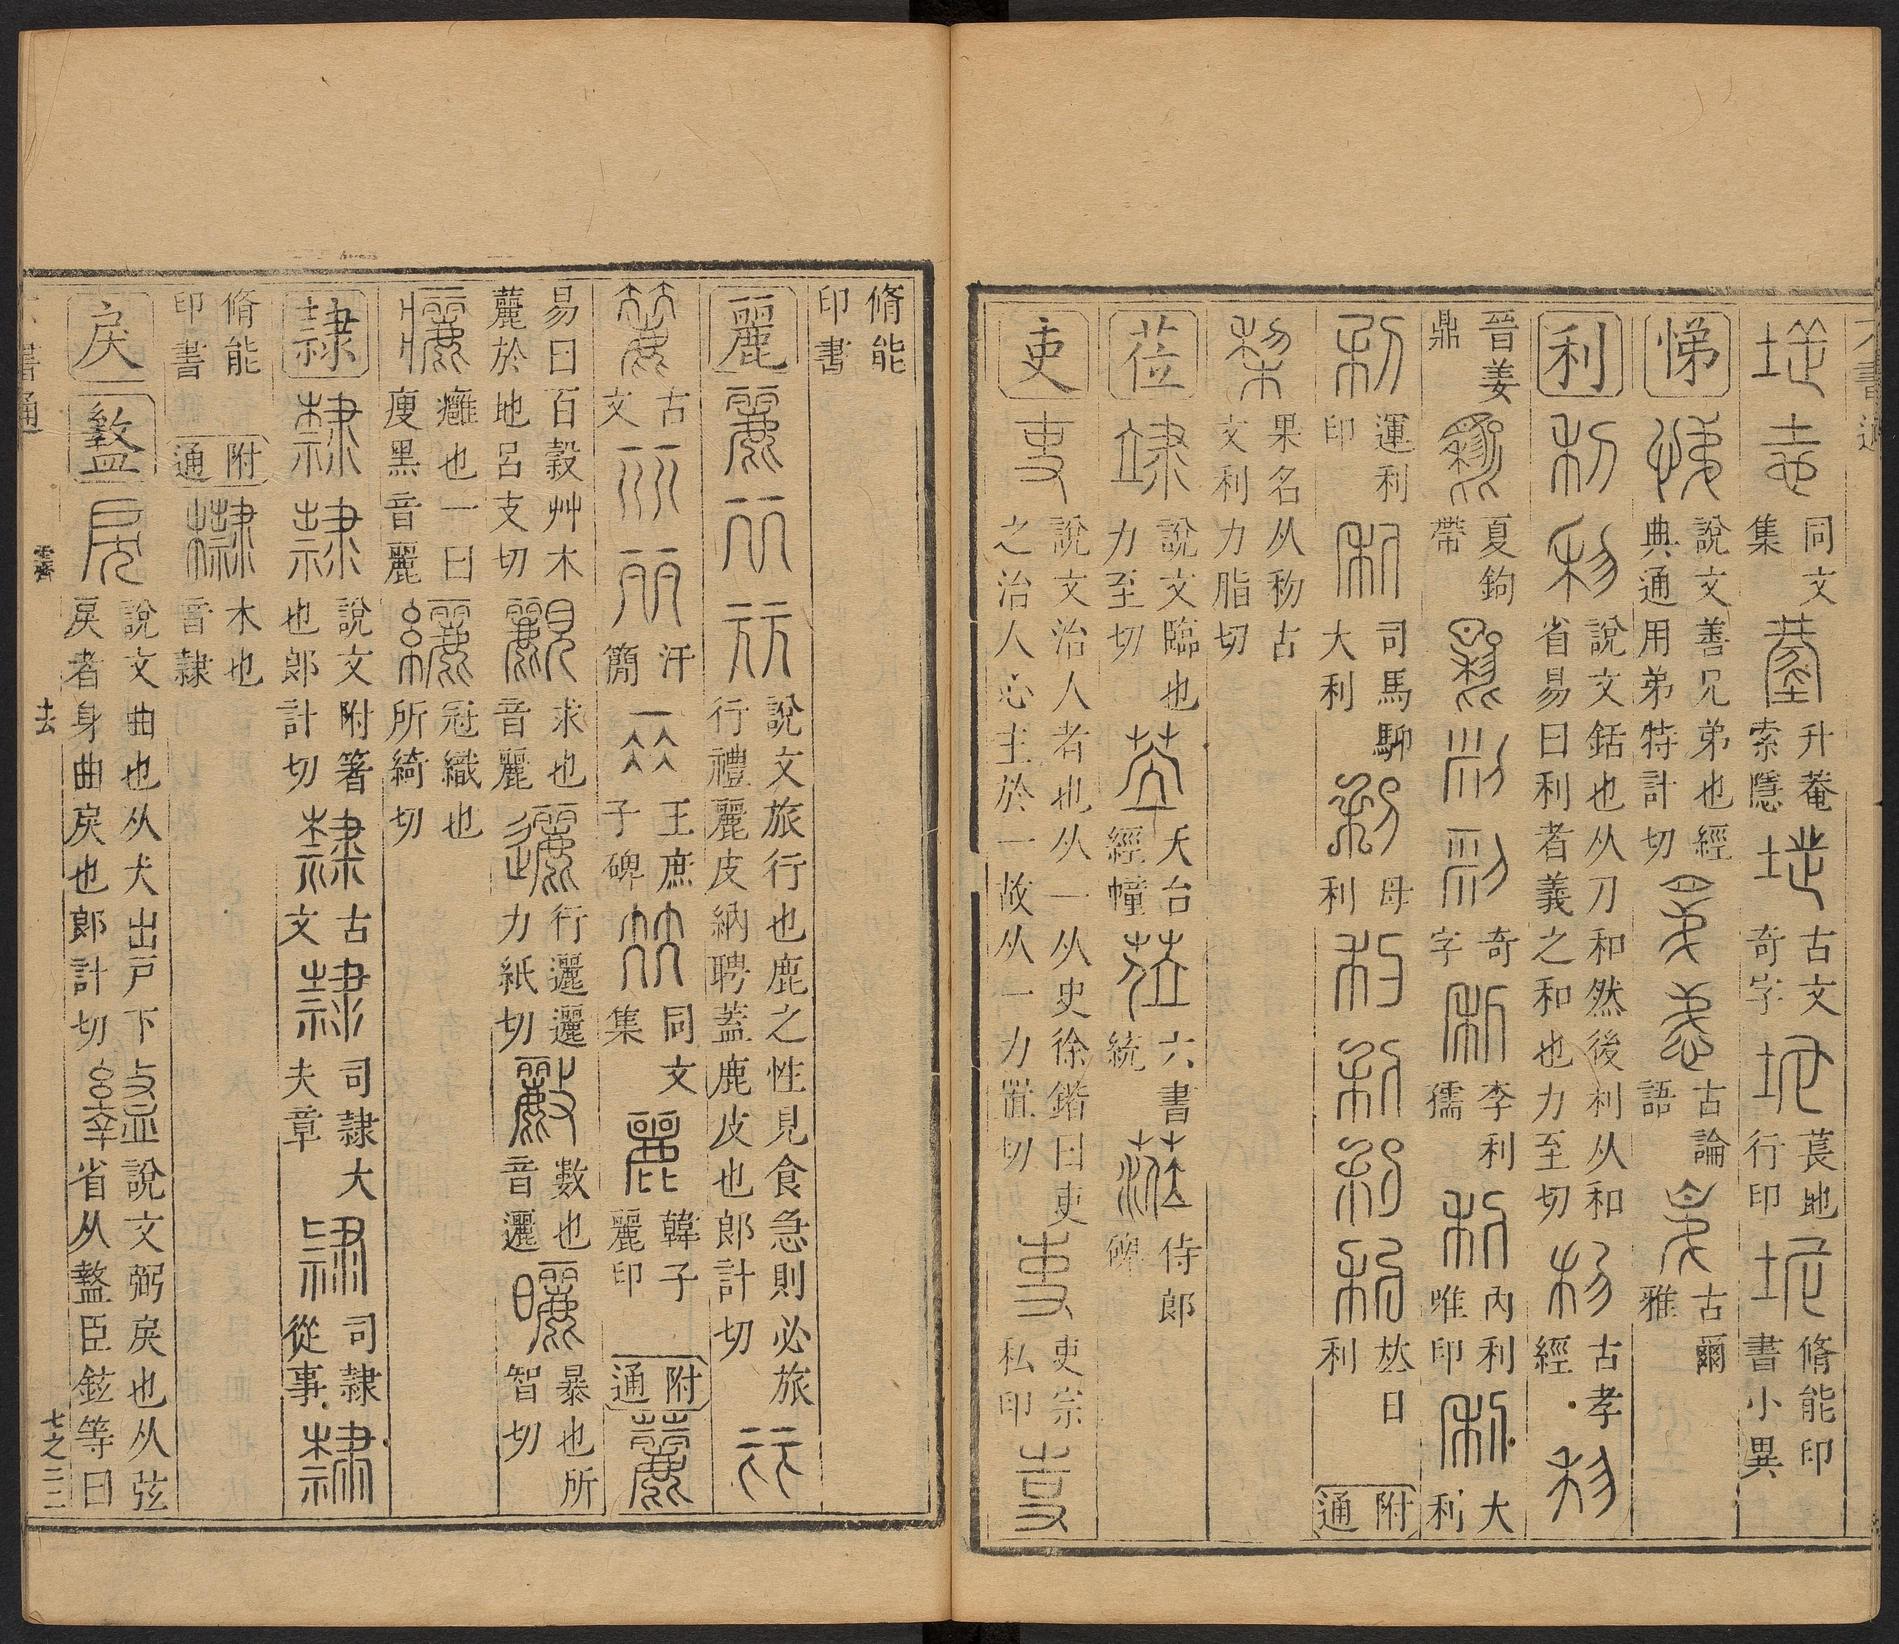 六書通
同文集
升菴索隱
古文奇字
萇地行印
脩能印書小異
悌
說文善兄弟也經典通用弟特計切
古論語
古爾雅
利
說文銛也从刀和然後利从和省易曰利者義之和也力至切
古孝經
晉姜鼎
夏鉤帶
奇字
李利孺
內利唯印
大利
運利印
司馬聊大利
母利
利
附通
果名从称古文利力脂切
莅
說文臨也力至切
天台經幢
六書統
侍郎碑
吏
說文治人者也从一从史徐鍇曰吏之治人心主於一故从一力置切
吏宗私印
脩能印書
麗
說文旅行也鹿之性見食急則必旅行禮麗皮納聘蓋鹿皮也郎計切
古文
汗簡
王庶子碑
同文集
韓子麗印
附通
易曰百穀艸木麗於地呂支切
求也音麗
行邐邐力紙切
數也音邐
暴也所智切
癰也一曰瘦黑音麗
冠織也所綺切
隸
說文附箸也郎計切
古文
司隸大夫章
司隸從事
脩能印書
附通
木也音隸
戾
盭
說文曲也从犬出戶下戾者身曲戾也郎計切
說文弼戾也从弦省从盩臣鉉等曰
六書通
去
七之二三